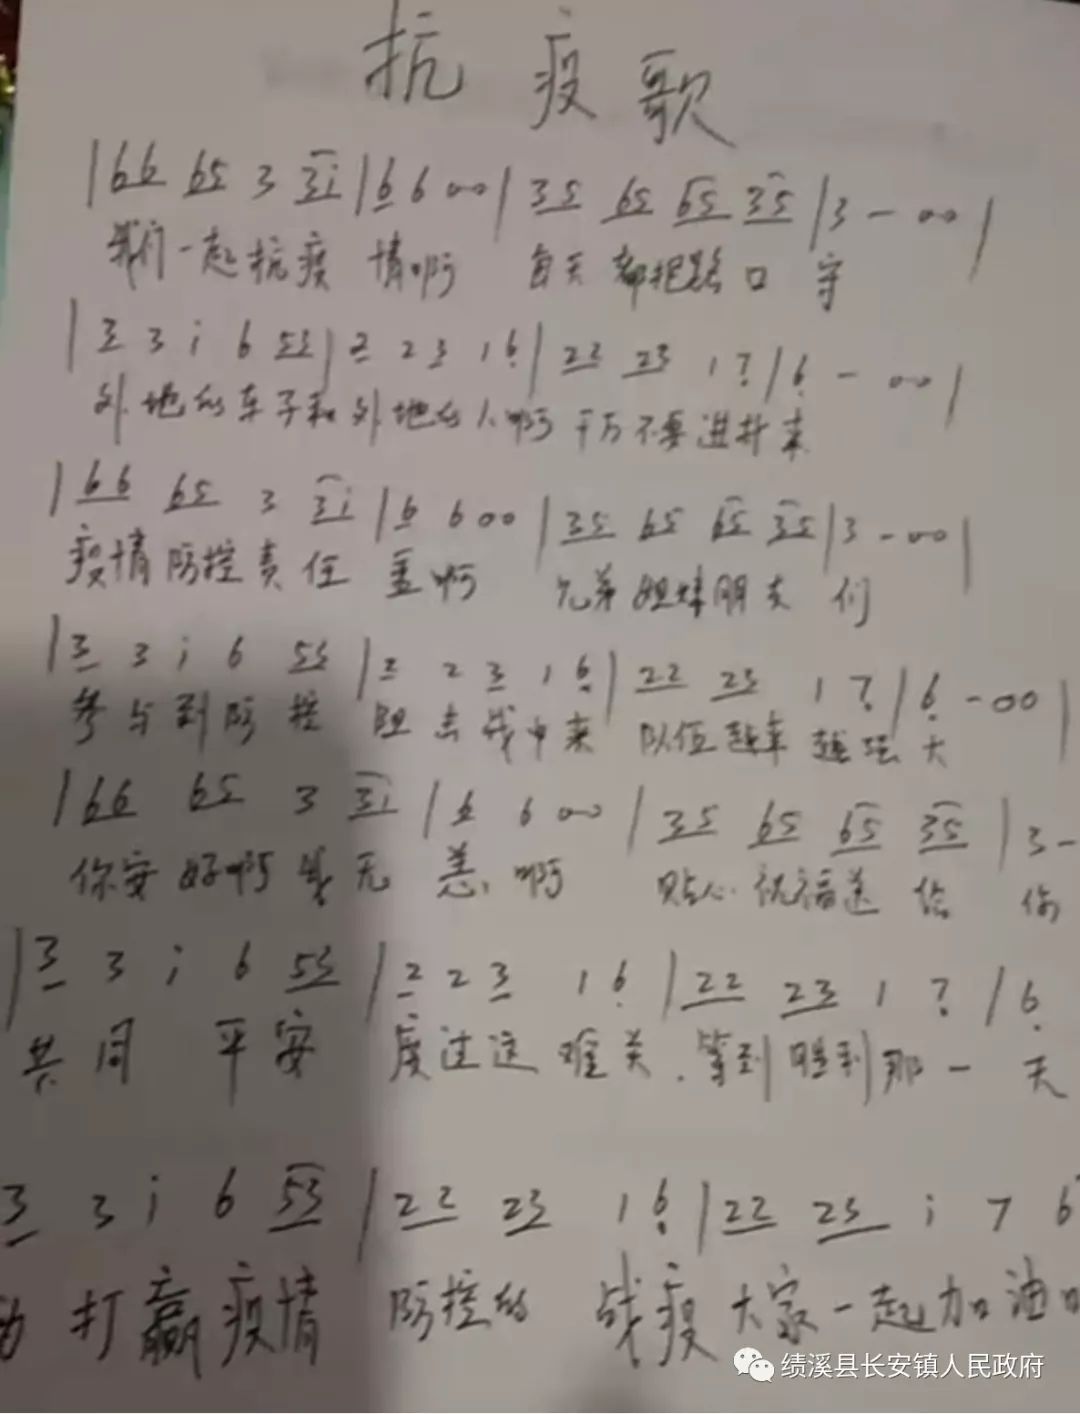 抗疫歌
|66 65 3 3i|6 6 00|35 65 65 35|3-00|
我们一起抗疫情啊 每天都把路口守
|3 3 i 6 53|2 2 3 1 6|22 23 1 7|6-00|
外地的车子和外地的人啊千万不要进村来
|66 65 3 3i|6 6 00|35 65 65 35|3-00|
疫情防控责任重啊 兄弟姐妹朋友们
|3 3 i 6 53|2 2 3 1 6|22 23 1 7|6-00|
参与到防控阻击战中来 队伍越来越强大
|66 65 3 3i|6 6 00|35 65 65 35|3-
你安好啊我无恙啊 贴心祝福送给你
|3 3 i 6 53|2 2 3 1 6|22 23 1 7|6
共同平安 度过这难关.等到胜利那一天
3 3 i 6 53|22 23 1 6|22 23 i 7 6
打赢疫情 防控的战疫大家一起加油
绩溪县长安镇人民政府